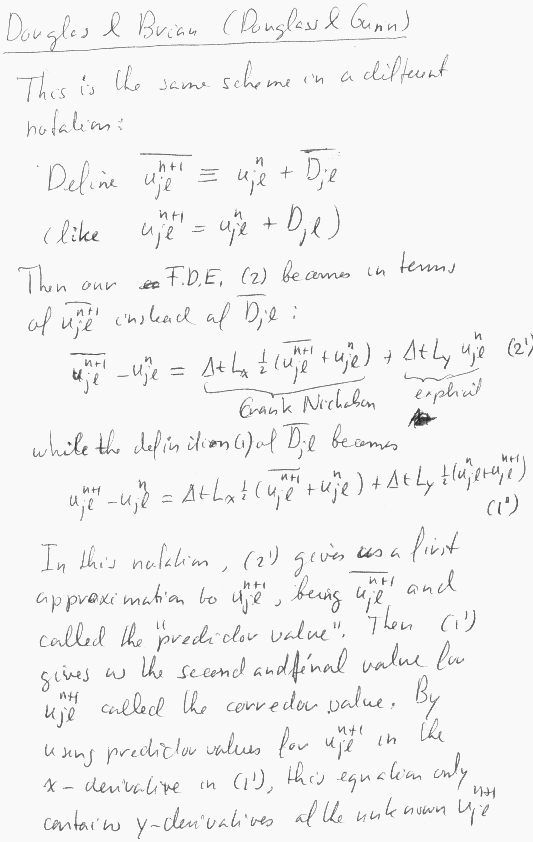 Douglas & Brian (Douglass & Gunn)
This is the same scheme in a different
notation:
Define \overline{u_{jl}^{n+1}} ≡ u_{jl}^n + \overline{D_{jl}}
(like u_{jl}^{n+1} = u_{jl}^n + D_{jl})
Then our F.D.E. (2) becomes in terms
of \overline{u_{jl}^{n+1}} instead of \overline{D_{jl}}:
\overline{u_{jl}^{n+1}} - u_{jl}^n = Δt L_x ½(\overline{u_{jl}^{n+1}} + u_{jl}^n) + Δt L_y u_{jl}^n (2')
Crank Nicholson explicit
while the definition (1) of \overline{D_{jl}} becomes
u_{jl}^{n+1} - u_{jl}^n = Δt L_x ½(\overline{u_{jl}^{n+1}} + u_{jl}^n) + Δt L_y ½(u_{jl}^n + u_{jl}^{n+1})
(1')
In this notation, (2') gives us a first
approximation to u_{jl}^{n+1}, being \overline{u_{jl}^{n+1}} and
called the "predictor value". Then (1')
gives us the second and final value for
u_{jl}^{n+1} called the corrector value. By
using predictor values for u_{jl}^{n+1} in the
x-derivative in (1'), this equation only
contains y-derivatives of the unknown u_{jl}^{n+1}